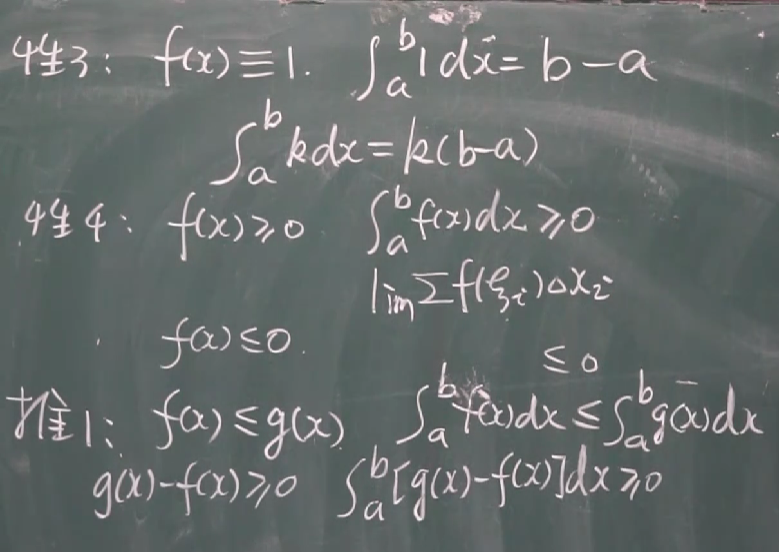 性3: f(x)≡1. ∫_a^b 1dx=b-a
∫_a^b kdx=k(b-a)
性4: f(x)≥0 ∫_a^b f(x)dx≥0
lim∑f(ξ_i)△x_i
f(x)≤0. ≤0
推1: f(x)≤g(x) ∫_a^b f(x)dx≤∫_a^b g(x)dx
g(x)-f(x)≥0 ∫_a^b[g(x)-f(x)]dx≥0